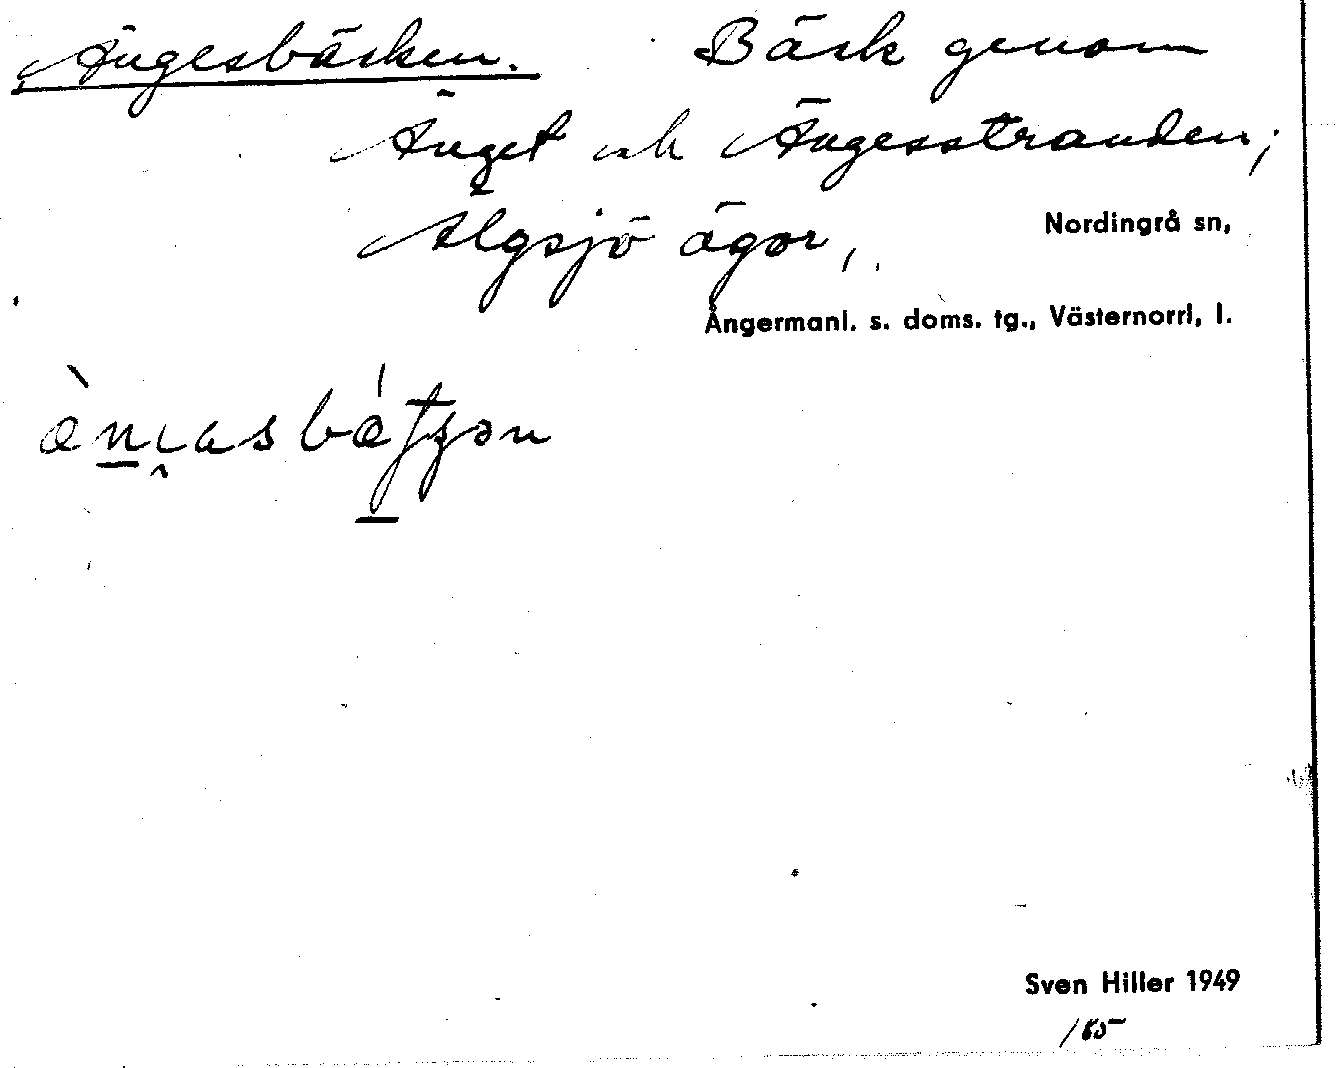 Ängesbäcken. Bäck genom
Änget och Ängesstranden;
Älgsjö ägor,
Nordingrå sn,
Ångermanl. s. doms. tg., Västernorrl, l.
Sven Hiller 1949